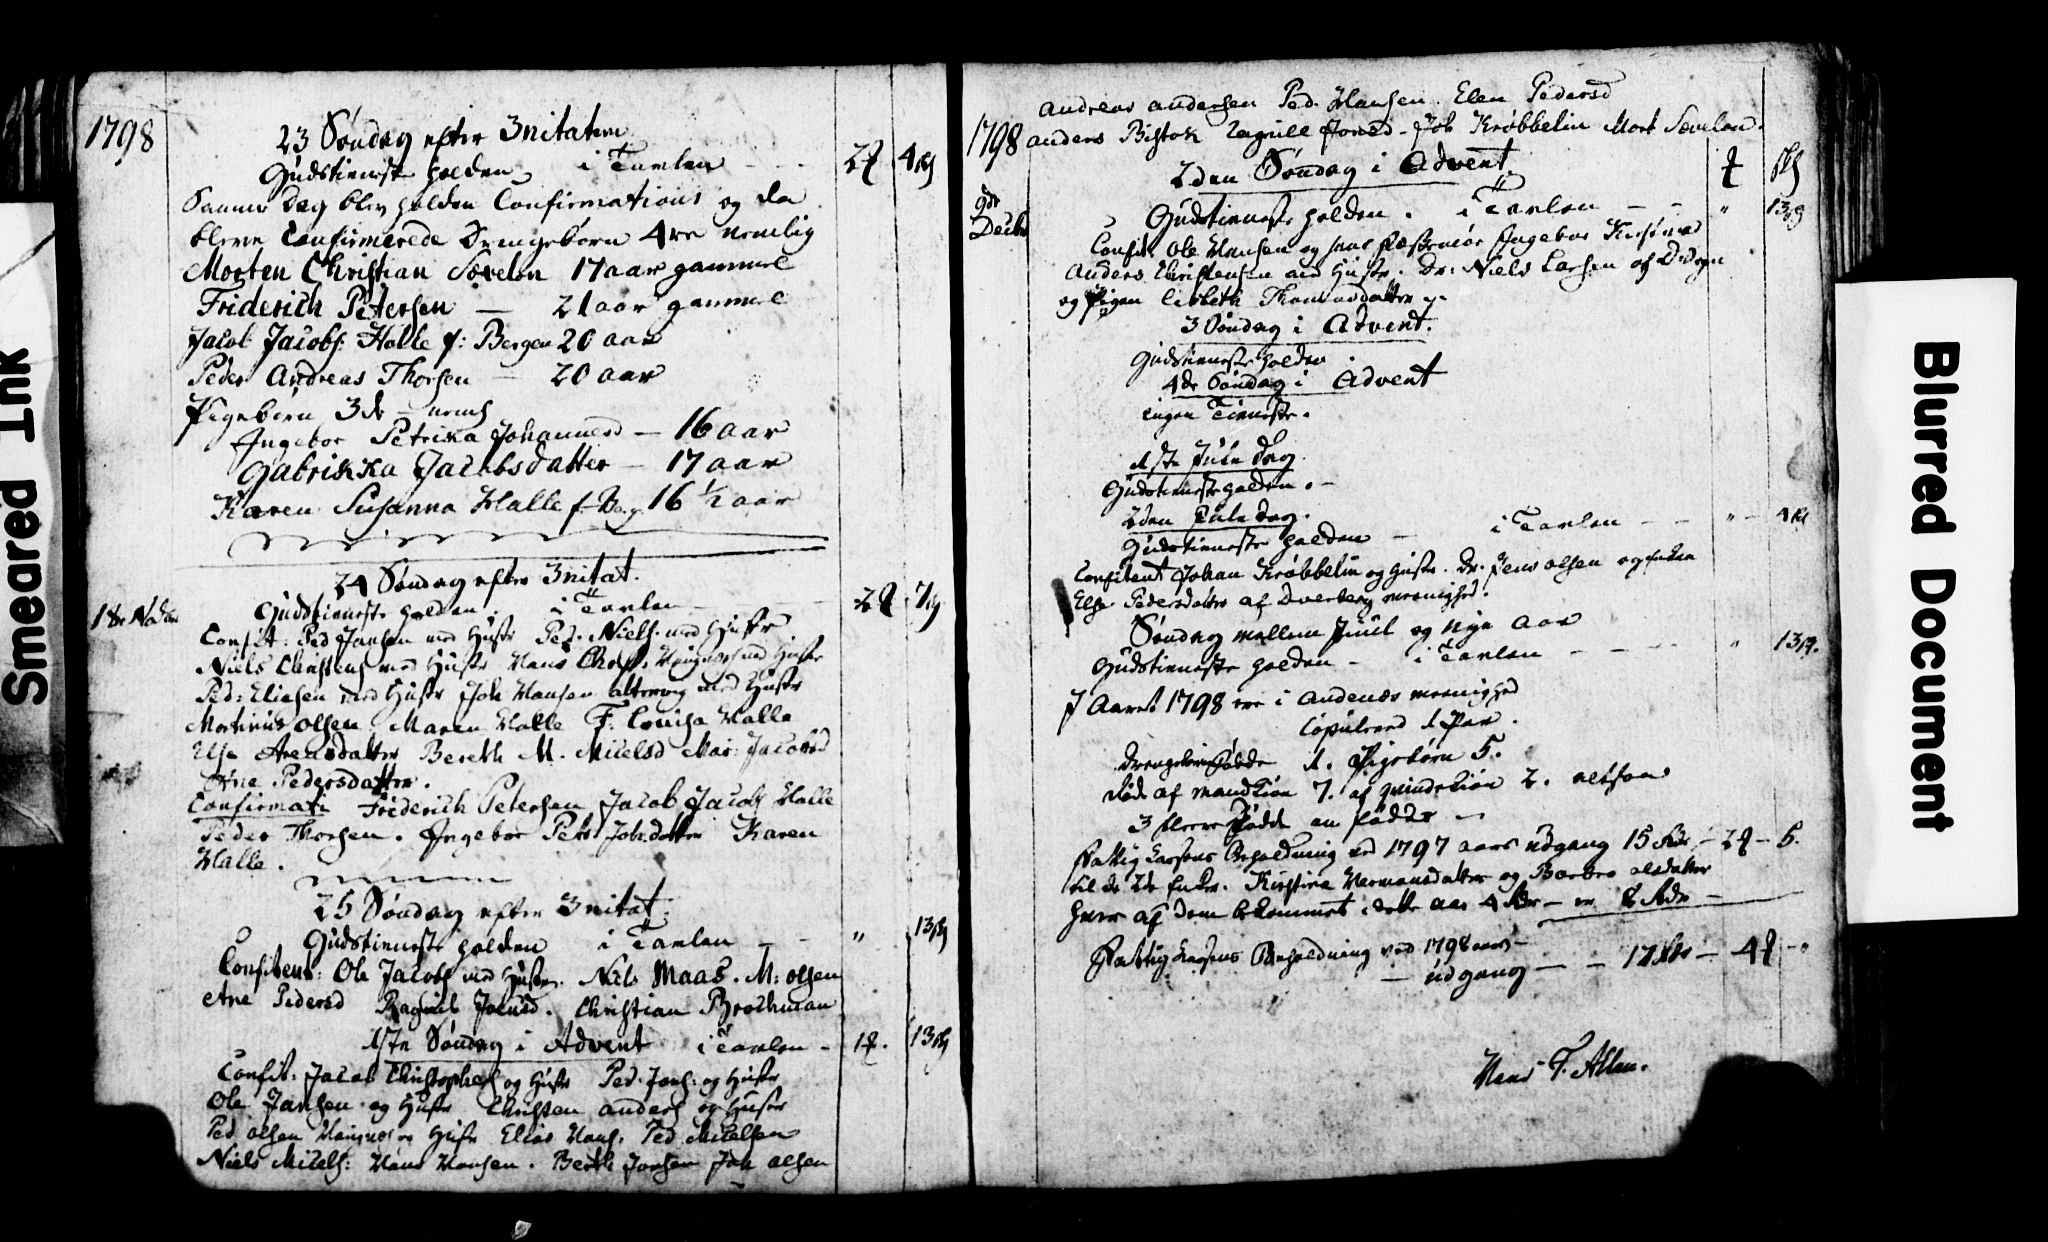 Smeared Ink
1798
23 Søndag efter 3nitatem
Gudstieneste holden i Tavlen - - 2 4 sh
Samme Dag blev holden Confirmations og da
bleve Confirmerede Drengebørn 4re nemlig
Morten Christian Sørelen 17 aar gammel
Friderich Petersen — 21 aar gammel
Jacob Jacobs: Halle f: Bergen 20 aar
Peder Andreas Thorsen — 20 aar
Pigebørn 3de nemlig
Ingebor Petrika Johannesd — 16 aar
Gabrikka Jacobsdatter — 17 aar
Karen Susanna Halle f. Berg. 16 1/2 aar
24 Søndag efter 3nitat.
18de Novbr Gudstieneste holden. i Tavlen 2 7 sh
Confit: Ped Jansen med Hustr Ped. Niels. med Hustr
Niels Christens med Hustr Hans med Hustr
Ped: Eliasen med Hustr Joh Hansen med Hustr
Mortinus Olsen Maren Halle F. Lovisa Halle
Else Arensdatter Bereth M. Mikelsd Mar: Jacobsd
Ane Pedersdatter.
Confirmati Friderich Petersen Jacob Jacobs Halle
Peder Thorsen. Ingebor Petr Johsdatter Karen
Halle.
25 Søndag efter 3nitat.
Gudstieneste holden i Tavlen - - " 13 sh
Confitent: Ole Jacobs med Hustr. Niels Maas. M: Olsen
Ane Pedersd Ragnil Joensd. Christian Brochman
1ste Søndag i Advent i Tavlen - 1. 13 sh
Confit: Jacob Christophers og Hustr Ped. Jans: og Hustr
Ole Jansen og Hustr Christen Anders og Hustr
Ped Olsen og Hustr Elias Hans. Ped Mikelsen
Niels Mikels: Hans Hansen. Berth Jonsen Joh Olsen
Andreas Andersen Ped. Hansen. Elen Pedersd
1798 Anders Bistok Ragnill Jonsd - Joh Krøbbelin Mort Sørelen.
2den Søndag i Advent sh
9de Decbr Gudstieneste holden. i Tavlen - - " 13 sh
Confit. Ole Hansen og hans Ingebor
Anders Christensen med Hustr. Dr: Niels Larsen af
og Pigen Lisbeth Thomasdatter
3 Søndag i Advent.
Gudstieneste holden
4de Søndag i Advent
ingen Tieneste.
1ste Jule Dag
Gudstieneste holden. -
2den Jule Dag.
Gudstieneste holden - i Tavlen - - " - 4 sh
Confitent Johan Krøbbelin og Hustr. Dr. Jens Olsen og Enken
Else Pedersdatter af Dverberg menighed.
Søndag mellem Juul og Nye Aar
Gudstieneste holden - i Tavlen - - - - " 13 sh.
I Aaret 1798 ere i Andenæs menighed
Copulered 1 Par.
Drengebørn fødde 1. Pigebørn 5.
død af mandkiøn 7. af qvindekiøn 2. altsaa
3 flere døde en fødde -
Fattig Casens Beholdning ved 1797 aars udgang 15 Rdr - 2 - 5.
til de 2de Enker. Kirstine Hermansdatter og Barbro Olsdatter
hver af dem bekommet i dette aar 4 Rdr - er 8 Rdr -
Fattig Casens Beholdning ved 1798 aars -
- udgang - - 17 Rdr - 4 - "
Hans T. Allan.
Blurred Document